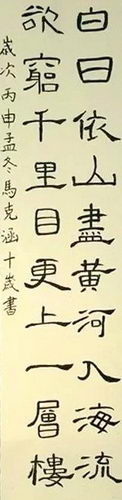 白日依山盡黃河入海流
欲窮千里目更上一層樓
歲次丙申孟冬馬克涵十歲書